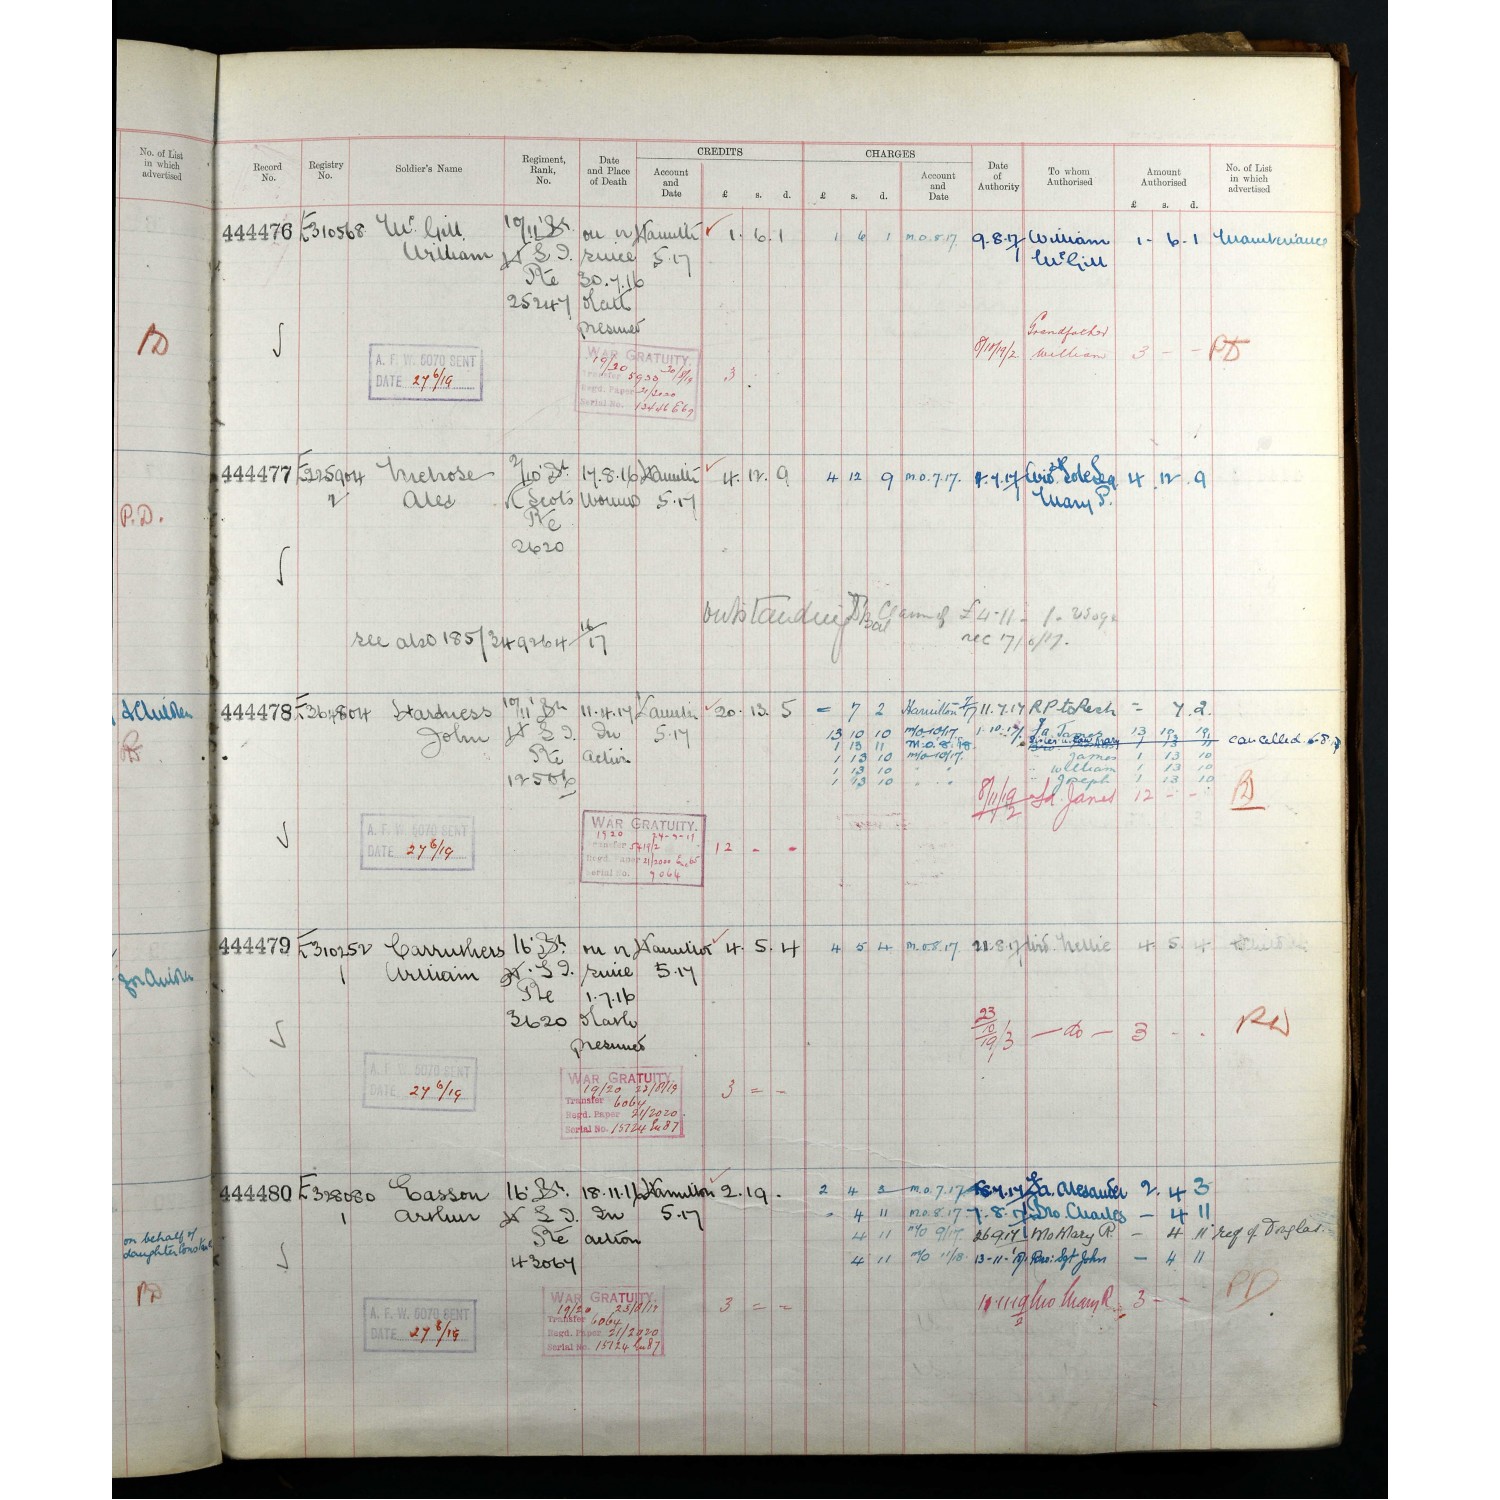 No. of List
in which
advertised
Record
No.
Registry
No.
Soldier's Name
Regiment,
Rank,
No.
Date
and Place
of Death
CREDITS
Account
and
Date
£ s. d.
CHARGES
£ s. d.
Account
and
Date
Date
of
Authority
To whom
Authorised
Amount
Authorised
£ s. d.
No. of List
in which
advertised
444476 E310568 McGill 10/11 Bn on or Hamilton 1. 6. 1 1 6 1 M.O.8.17. 9.8.17 William 1. 6. 1 Maintenance
William H.L.I. since 5.17 McGill
Pte 30.7.16
25247 death
presumed
Grandfather
William 3 - -
A. F. W. 5070 SENT
DATE 27 6/19
WAR GRATUITY.
19/20
Transfer
Regd. Paper 21/2020
Serial No.
3
444477 E225904 Melrose 2/10 Bn 17.8.16 Hamilton 4. 12. 9 4 12 9 M.O.7.17. Wid & Sole Leg 4. 12. 9
2 Alex R Scots Wounds 5.17 Mary P.
Pte
2620
P.D.
Outstanding £4-11-
see also 185/349264 16/17
& Children
444478 E364804 Hardness 10/11 Bn 11.4.17 Hamilton 20. 13. 5 = 7 2 Hamilton 11.7.17 = 7. 2.
John H.L.I. In 5.17 13 10 10 M/O 10/17. 1.10.17 Fa. James
Pte action 1 13 11 M.O.8.18. cancelled 6.8.
12506 1 13 10 M/O 10/17. James 1 13 10
1 13 10 William 1 13 10
1 13 10 Joseph 1 13 10
8/11/19 12 - -
A. F. W. 5070 SENT
DATE 27 6/19
WAR GRATUITY.
Transfer
Regd. Paper 21/2020
Serial No. 9064
12 - -
444479 E310252 Carruthers 16 Bn on or Hamilton 4. 5. 4 4 5 4 M.O.8.17. 21.8.17 Wid. Nellie 4. 5. 4
1 William H.L.I. since 5.17
Pte 1.7.16
3620 death
presumed
for Children
23/10/19 - do - 3 - -
A. F. W. 5070 SENT
DATE 27 6/19
WAR GRATUITY.
19/20 23/8/19
Transfer 6064
Regd. Paper 21/2020
Serial No. 15724
3 = -
444480 E328080 Easson 16 Bn. 18.11.16 Hamilton 2. 19. 2 4 3 M.O.7.17. Fa. Alexander 2. 4 3
1 Arthur H.L.I. In 5.17 - 4 11 M.O.8.17. 7.8.17 Bro. Charles - 4 11
Pte action 4 11 M/O 9/17. 26.9.17 Mo Mary R. - 4 11
43067 4 11 M/O 11/18. Bro: Sgt John - 4 11
on behalf of
daughter
Mo Mary R. 3 - -
P.D
A. F. W. 5070 SENT
DATE 27 8/19
WAR GRATUITY.
19/20 23/8/19
Transfer 6064
Regd. Paper 21/2020
Serial No. 15724
3 = -